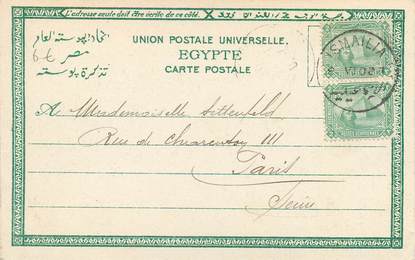 L'adresse seule doit être écrite de ce côté.
UNION POSTALE UNIVERSELLE.
EGYPTE
CARTE POSTALE
اتحاد البوسته العام
مصر
تذكرة بوسته
ISMAILIA
A Mademoiselle
Rue de Charenton 111
Paris
Seine